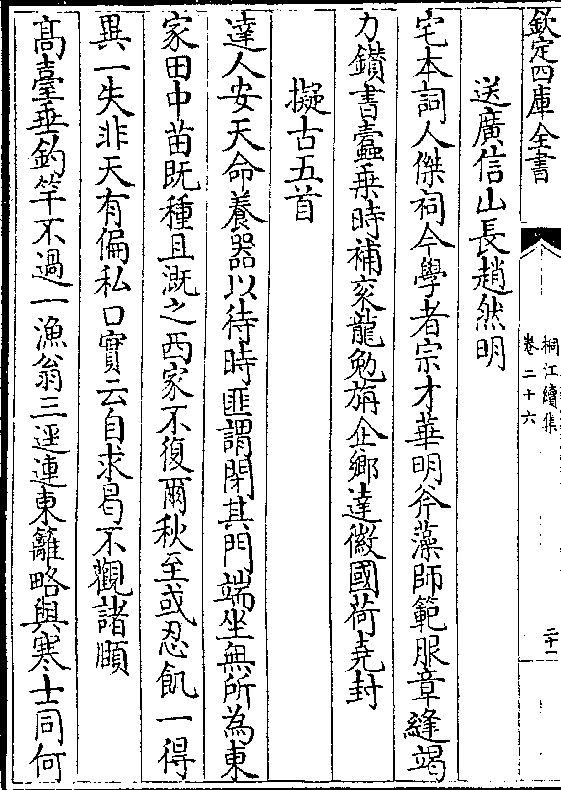 欽定四庫全書
桐江續集
卷二十六
二十一
送廣信山長趙然明
宅本詞人傑祠今學者宗才華明斧藻師範服章縫竭
力鑚書蠹乗時補衮龍勉旃企鄉達徽國荷堯封
擬古五首
達人安天命養器以待時匪謂閉其門端坐無所為東
家田中苗既種且溉之西家不復爾秋至或忍飢一得
異一失非天有偏私口實云自求曷不觀諸頤
髙臺垂釣竿不過一漁翁三逕連東籬略與寒士同何